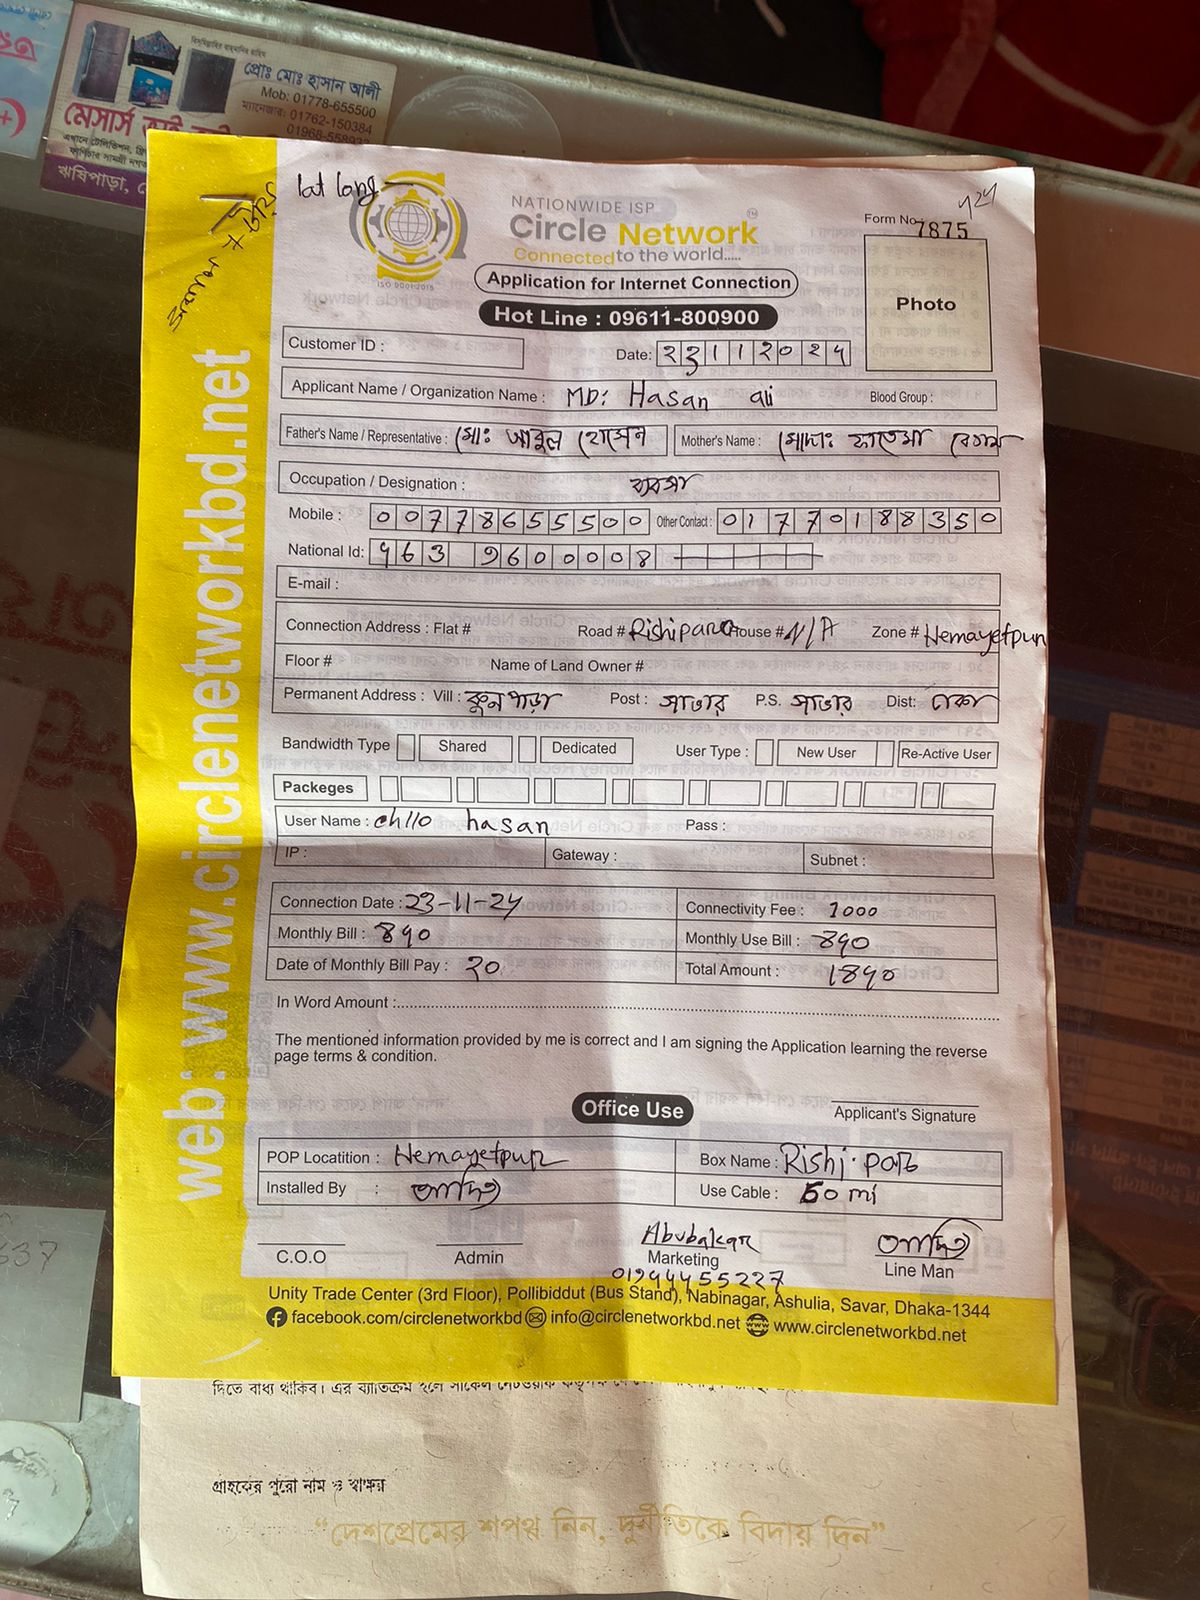 বিসমিল্লাহির রাহমানির রাহিম
প্রোঃ মোঃ হাসান আলী
Mob: 01778-655500
ম্যানেজার: 01762-150384
মেসার্স
ঋষিপাড়া,
lat long
724
NATIONWIDE ISP
Circle Network
Connected to the world.....
ISO 9001:2015
Form No. 7875
Application for Internet Connection
Photo
Hot Line : 09611-800900
Customer ID :
Date: 23 11 2024
Applicant Name / Organization Name : MD: Hasan ali Blood Group :
Father's Name / Representative : মোঃ আবুল হোসেন Mother's Name : মোছাঃ ফাতেমা বেগম
Occupation / Designation : ব্যবসা
Mobile : 00778655500 Other Contact : 01770188350
National Id: 463 9600008
E-mail :
Connection Address : Flat # Road # Rishipara House # N/A Zone # Hemayetpur
Floor # Name of Land Owner #
Permanent Address : Vill : Post : সাভার P.S. সাভার Dist: ঢাকা
Bandwidth Type Shared Dedicated User Type : New User Re-Active User
Packeges
User Name : ch110 hasan Pass :
IP : Gateway : Subnet :
Connection Date : 23-11-24 Connectivity Fee : 1000
Monthly Bill : 890 Monthly Use Bill : 890
Date of Monthly Bill Pay : 20 Total Amount : 1890
In Word Amount :
The mentioned information provided by me is correct and I am signing the Application learning the reverse
page terms & condition.
Office Use
Applicant's Signature
POP Locatition : Hemayetpur Box Name : Rishi.para
Installed By : Use Cable : 50 mi
Abubakar
C.O.O Admin Marketing Line Man
01944455227
Unity Trade Center (3rd Floor), Pollibiddut (Bus Stand), Nabinagar, Ashulia, Savar, Dhaka-1344
facebook.com/circlenetworkbd info@circlenetworkbd.net www.circlenetworkbd.net
web: www.circlenetworkbd.net
গ্রাহকের পুরো নাম ও স্বাক্ষর
“দেশপ্রেমের শপথ নিন, দুর্নীতিকে বিদায় দিন”